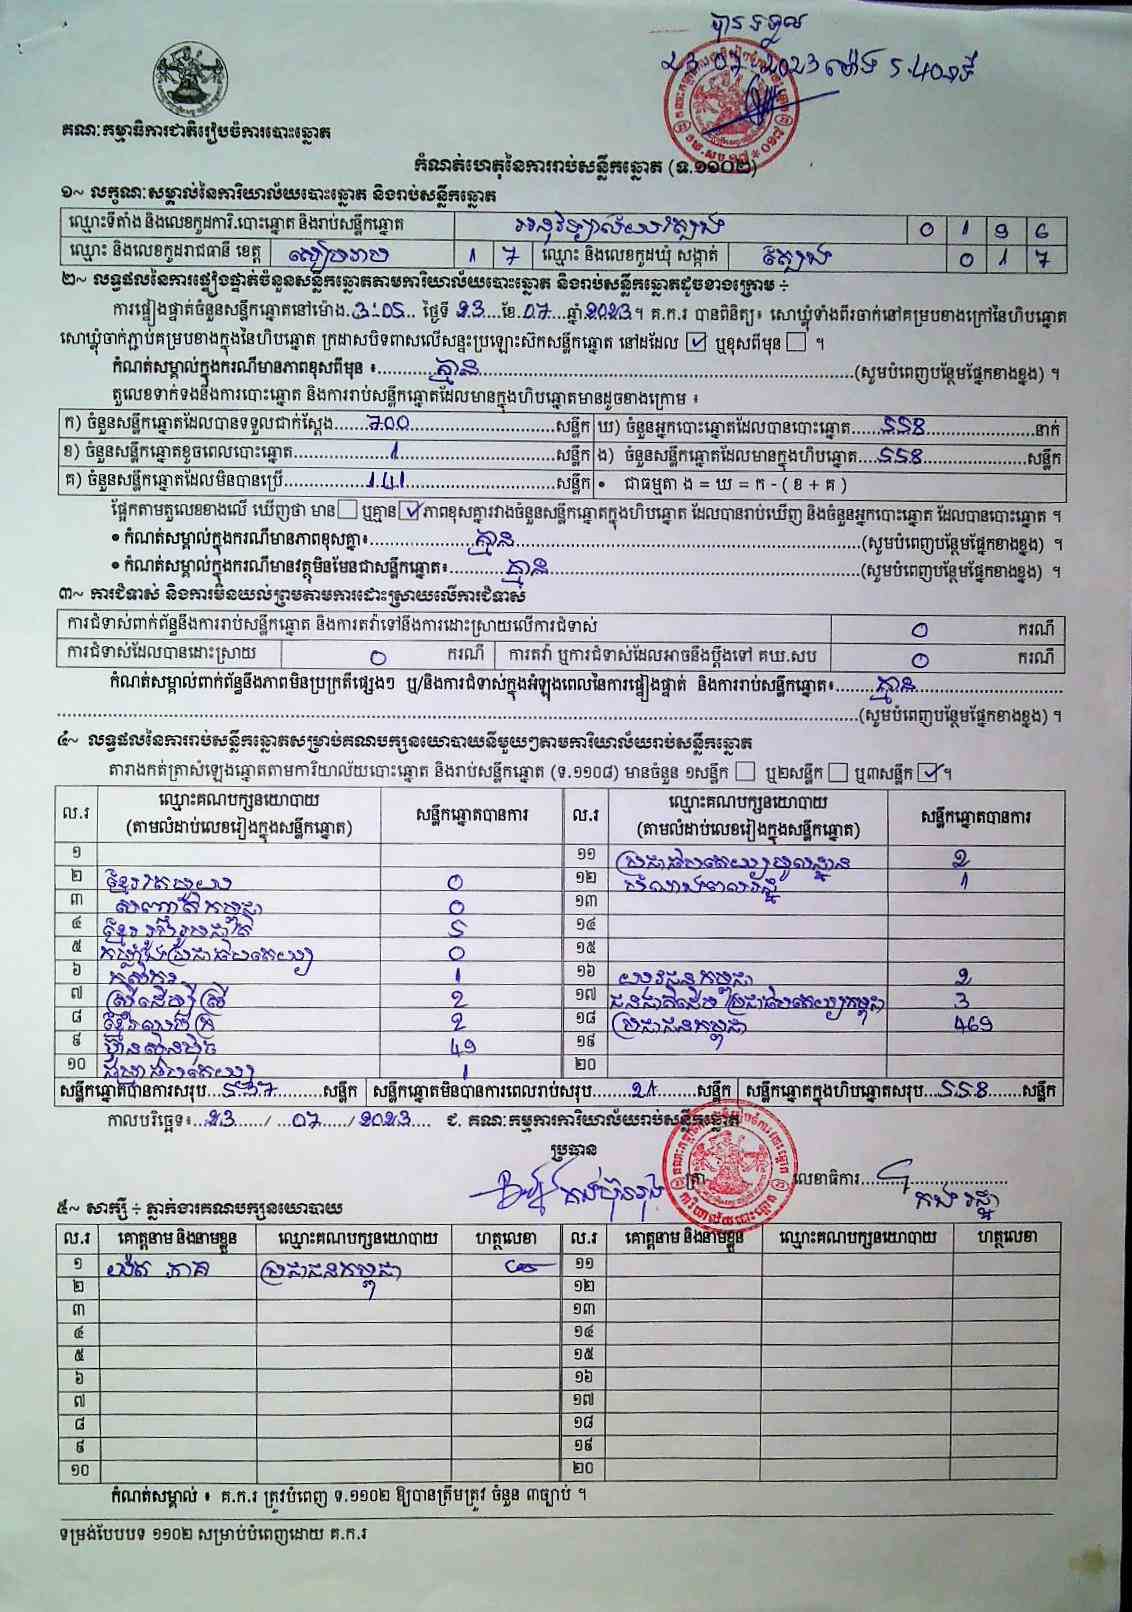 បានទទួល
២៣ ០៧ 2023 ម៉ោង ៤.40នាទី
គណៈកម្មាធិការជាតិរៀបចំការបោះឆ្នោត
កំណត់ហេតុនៃការរាប់សន្លឹកឆ្នោត (ទ.១១០២)
១~ លក្ខណៈសម្គាល់នៃការិយាល័យបោះឆ្នោត និងរាប់សន្លឹកឆ្នោត
ឈ្មោះទីតាំង និងលេខកូដការិ.បោះឆ្នោត និងរាប់សន្លឹកឆ្នោត អនុវិទ្យាល័យ 0 1 9 6
ឈ្មោះ និងលេខកូដរាជធានី ខេត្ត សៀមរាប 1 7 ឈ្មោះ និងលេខកូដឃុំ សង្កាត់ 0 1 7
២~ លទ្ធផលនៃការផ្ទៀងផ្ទាត់ចំនួនសន្លឹកឆ្នោតតាមការិយាល័យបោះឆ្នោត និងរាប់សន្លឹកឆ្នោតដូចខាងក្រោម ÷
ការផ្ទៀងផ្ទាត់ចំនួនសន្លឹកឆ្នោតនៅម៉ោង..3:05... ថ្ងៃទី 23..ខែ.07...ឆ្នាំ.2023។ គ.ក.រ បានពិនិត្យ៖ សោឃ្លុំទាំងពីរចាក់នៅគម្របខាងក្រៅនៃហិបឆ្នោត
សោឃ្លុំចាក់ភ្ជាប់គម្របខាងក្នុងនៃហិបឆ្នោត ក្រដាសបិទពាសលើសន្ទះប្រឡោះស៊កសន្លឹកឆ្នោត នៅដដែល ☑ ឬខុសពីមុន ☐ ។
កំណត់សម្គាល់ក្នុងករណីមានភាពខុសពីមុន ៖ គ្មាន (សូមបំពេញបន្ថែមផ្នែកខាងខ្នង) ។
តួលេខទាក់ទងនឹងការបោះឆ្នោត និងការរាប់សន្លឹកឆ្នោតដែលមានក្នុងហិបឆ្នោតមានដូចខាងក្រោម ៖
ក) ចំនួនសន្លឹកឆ្នោតដែលបានទទួលជាក់ស្តែង......700......សន្លឹក ឃ) ចំនួនអ្នកបោះឆ្នោតដែលបានបោះឆ្នោត......558......នាក់
ខ) ចំនួនសន្លឹកឆ្នោតខូចពេលបោះឆ្នោត......1......សន្លឹក ង) ចំនួនសន្លឹកឆ្នោតដែលមានក្នុងហិបឆ្នោត......558......សន្លឹក
គ) ចំនួនសន្លឹកឆ្នោតដែលមិនបានប្រើ......141......សន្លឹក • ជាធម្មតា ង = ឃ = ក - ( ខ + គ )
ផ្អែកតាមតួលេខខាងលើ ឃើញថា មាន ☐ ឬគ្មាន ☑ ភាពខុសគ្នារវាងចំនួនសន្លឹកឆ្នោតក្នុងហិបឆ្នោត ដែលបានរាប់ឃើញ និងចំនួនអ្នកបោះឆ្នោត ដែលបានបោះឆ្នោត ។
• កំណត់សម្គាល់ក្នុងករណីមានភាពខុសគ្នា៖ គ្មាន (សូមបំពេញបន្ថែមផ្នែកខាងខ្នង) ។
• កំណត់សម្គាល់ក្នុងករណីមានវត្ថុមិនមែនជាសន្លឹកឆ្នោត៖ គ្មាន (សូមបំពេញបន្ថែមផ្នែកខាងខ្នង) ។
៣~ ការជំទាស់ និងការមិនយល់ព្រមតាមការដោះស្រាយលើការជំទាស់
ការជំទាស់ពាក់ព័ន្ធនឹងការរាប់សន្លឹកឆ្នោត និងការតវ៉ាទៅនឹងការដោះស្រាយលើការជំទាស់ 0 ករណី
ការជំទាស់ដែលបានដោះស្រាយ 0 ករណី ការតវ៉ា ឬការជំទាស់ដែលអាចនឹងប្តឹងទៅ គឃ.សប 0 ករណី
កំណត់សម្គាល់ពាក់ព័ន្ធនឹងភាពមិនប្រក្រតីផ្សេងៗ ឬ/និងការជំទាស់ក្នុងអំឡុងពេលនៃការផ្ទៀងផ្ទាត់ និងការរាប់សន្លឹកឆ្នោត៖ គ្មាន
(សូមបំពេញបន្ថែមផ្នែកខាងខ្នង) ។
៤~ លទ្ធផលនៃការរាប់សន្លឹកឆ្នោតសម្រាប់គណបក្សនយោបាយនីមួយៗតាមការិយាល័យរាប់សន្លឹកឆ្នោត
តារាងកត់ត្រាសំឡេងឆ្នោតតាមការិយាល័យបោះឆ្នោត និងរាប់សន្លឹកឆ្នោត (ទ.១១០៨) មានចំនួន ១សន្លឹក ☐ ឬ២សន្លឹក ☐ ឬ៣សន្លឹក ☑ ។
ល.រ ឈ្មោះគណបក្សនយោបាយ (តាមលំដាប់លេខរៀងក្នុងសន្លឹកឆ្នោត) សន្លឹកឆ្នោតបានការ ល.រ ឈ្មោះគណបក្សនយោបាយ (តាមលំដាប់លេខរៀងក្នុងសន្លឹកឆ្នោត) សន្លឹកឆ្នោតបានការ
១ ១១ ប្រជាធិបតេយ្យមូលដ្ឋាន 2
២ ខ្មែរតែមួយ 0 ១២ 1
៣ សញ្ជាតិកម្ពុជា 0 ១៣
៤ ខ្មែររួបរួមជាតិ 5 ១៤
៥ កម្លាំងប្រជាធិបតេយ្យ 0 ១៥
៦ កសិករ 1 ១៦ យុវជនកម្ពុជា 2
៧ ស្រ្តីដើម្បីស្ត្រី 2 ១៧ ជនជាតិដើមប្រជាធិបតេយ្យកម្ពុជា 3
៨ 2 ១៨ ប្រជាជនកម្ពុជា 469
៩ ហ៊្វុនស៊ិនប៉ិច 49 ១៩
១០ ធម្មាធិបតេយ្យ 1 ២០
សន្លឹកឆ្នោតបានការសរុប...537......សន្លឹក សន្លឹកឆ្នោតមិនបានការពេលរាប់សរុប......21......សន្លឹក សន្លឹកឆ្នោតក្នុងហិបឆ្នោតសរុប...558......សន្លឹក
កាលបរិច្ឆេទ៖...23....../ ...07....../ 2023.... ជ. គណៈកម្មការការិយាល័យរាប់សន្លឹកឆ្នោត
ប្រធាន
ត្រា លេខាធិការ
៥~ សាក្សី ÷ ភ្នាក់ងារគណបក្សនយោបាយ
ល.រ គោត្តនាម និងនាមខ្លួន ឈ្មោះគណបក្សនយោបាយ ហត្ថលេខា ល.រ គោត្តនាម និងនាមខ្លួន ឈ្មោះគណបក្សនយោបាយ ហត្ថលេខា
១ ប្រជាជនកម្ពុជា ១១
២ ១២
៣ ១៣
៤ ១៤
៥ ១៥
៦ ១៦
៧ ១៧
៨ ១៨
៩ ១៩
១០ ២០
កំណត់សម្គាល់ ៖ គ.ក.រ ត្រូវបំពេញ ទ.១១០២ ឱ្យបានត្រឹមត្រូវ ចំនួន ៣ច្បាប់ ។
ទម្រង់បែបបទ ១១០២ សម្រាប់បំពេញដោយ គ.ក.រ